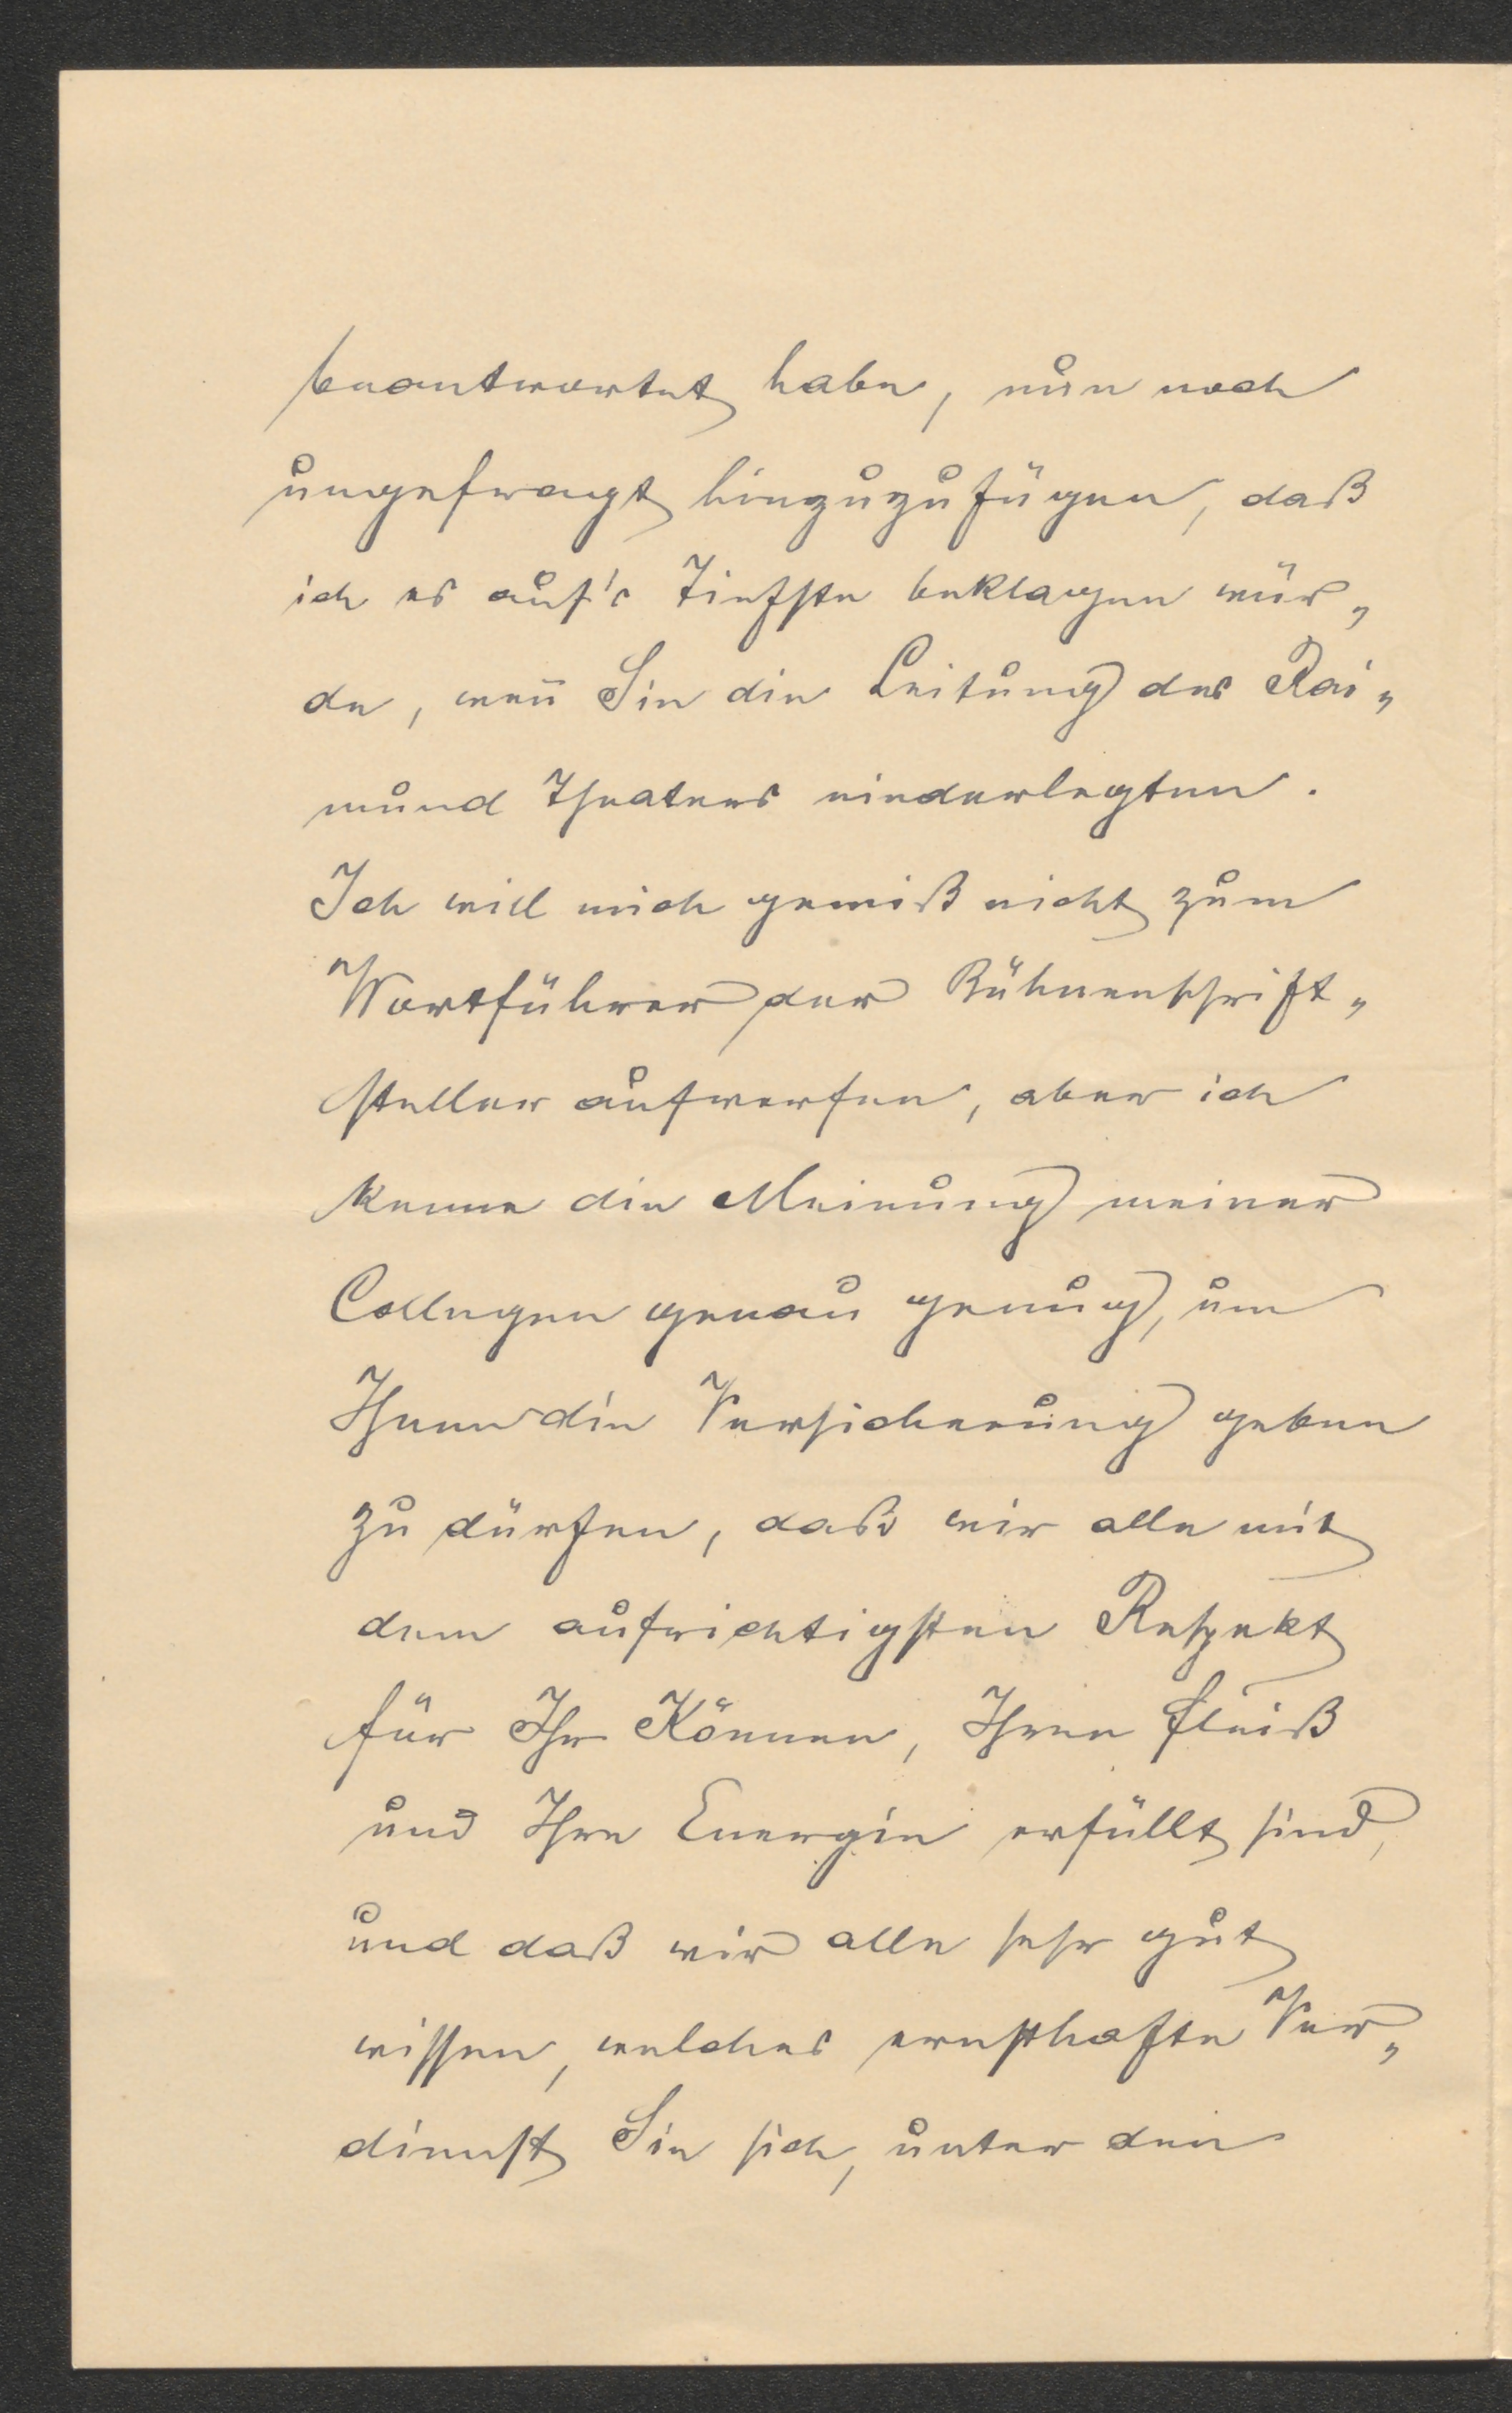 beantwortet habe, nun noch
ungefragt hinzuzufügen, daß
ich es auf's Tiefste beklagen wür„
de, wen̄ Sie die Leitung des Rai„
mund Theaters niederlegten.
Ich will mich gewiß nicht zum
Wortführer der Bühnenschrift„
steller aufwerfen, aber ich
kenne die Meinung meiner
Collegen genau genug, um
Ihnen die Versicherung geben
zu dürfen, daß wir alle mit
dem aufrichtigsten Respekt
für Ihr Können, Ihren Fleiß
und Ihre Energie erfüllt sind,
und daß wir alle sehr gut
wissen, welches ernsthafte Ver„
dienst Sie sich, unter den